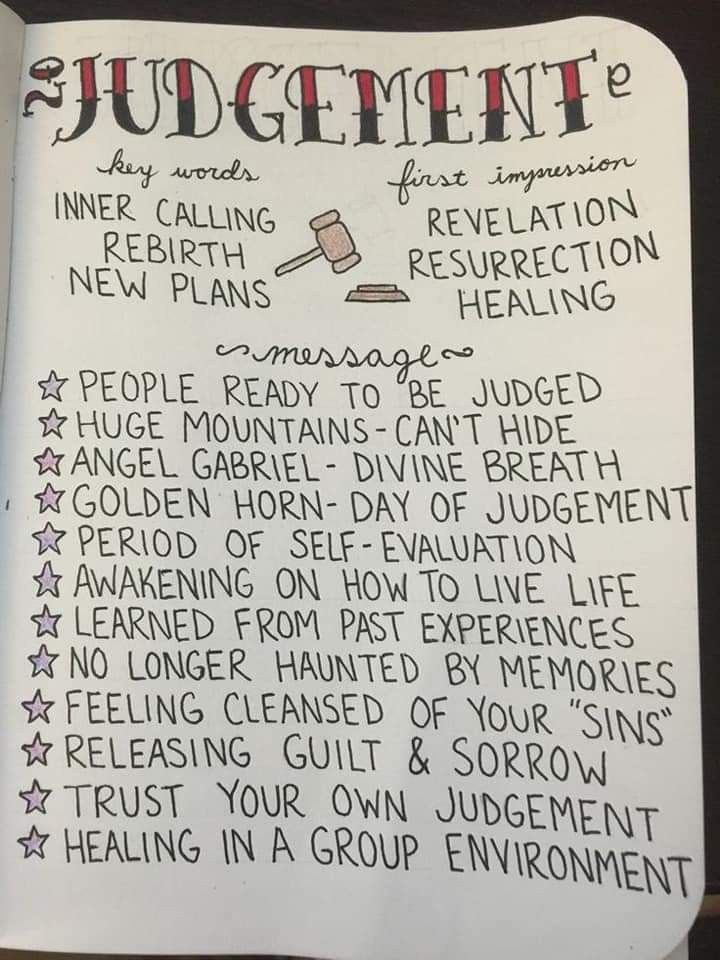 JUDGEMENT
key words
INNER CALLING
REBIRTH
NEW PLANS
first impression
REVELATION
RESURRECTION
HEALING
message
PEOPLE READY TO BE JUDGED
HUGE MOUNTAINS - CAN'T HIDE
ANGEL GABRIEL - DIVINE BREATH
GOLDEN HORN - DAY OF JUDGEMENT
PERIOD OF SELF - EVALUATION
AWAKENING ON HOW TO LIVE LIFE
LEARNED FROM PAST EXPERIENCES
NO LONGER HAUNTED BY MEMORIES
FEELING CLEANSED OF YOUR "SINS"
RELEASING GUILT & SORROW
TRUST YOUR OWN JUDGEMENT
HEALING IN A GROUP ENVIRONMENT